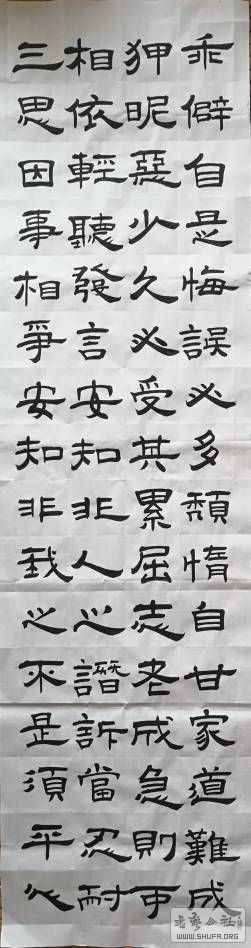 乖僻自是悔誤必多頹惰自甘家道難成
狎昵惡少久必受其累屈志老成急則可
相依輕聽發言安知非人之譖訴當忍耐
三思因事相爭安知非我之不是須平心
书艺公社
WWW.SHUFA.ORG